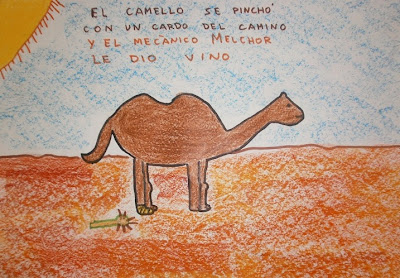 EL CAMELLO SE PINCHÓ
CON UN CARDO DEL CAMINO
Y EL MECÀNICO MELCHOR
LE DIO VINO